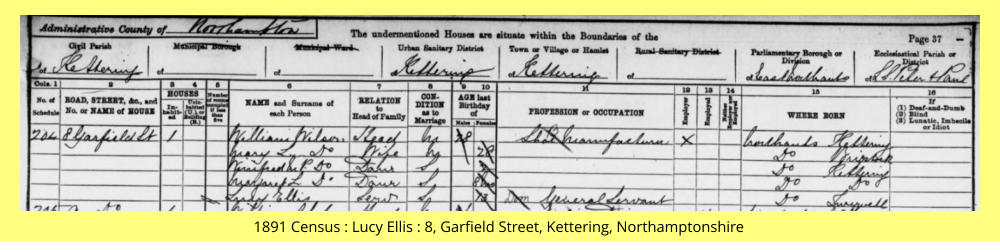 Administrative County of Northampton
The undermentioned Houses are situate within the Boundaries of the
Page 37
Civil Parish
Municipal Borough
Municipal Ward
Urban Sanitary District
Town or Village or Hamlet
Rural Sanitary District
Parliamentary Borough or Division
Ecclesiastical Parish or District
of Kettering of of Kettering of Kettering of of East Northants of St Peter & Paul
Cols. 1 2 3 4 5 6 7 8 9 10 11 12 13 14 15 16
No. of Schedule
ROAD, STREET, &c., and No. or NAME of HOUSE
HOUSES
In-habit-ed
Unin-habited (U.) or Building (B.)
Number of rooms occupied if less than five
NAME and Surname of each Person
RELATION to Head of Family
CON-DITION as to Marriage
AGE last Birthday of
Males Females
PROFESSION or OCCUPATION
Employer
Employed
WHERE BORN
If
(1) Deaf-and-Dumb
(2) Blind
(3) Lunatic, Imbecile or Idiot
8 Garfield St 1 William Head M 28 Manufacturer X Northants Kettering
Mary L. Do Wife M 28 Do
Winifred Do Daur S Do Kettering
Margaret L. Do Daur S Do Do
Lucy Ellis Serv S General Servant Do
1891 Census : Lucy Ellis : 8, Garfield Street, Kettering, Northamptonshire